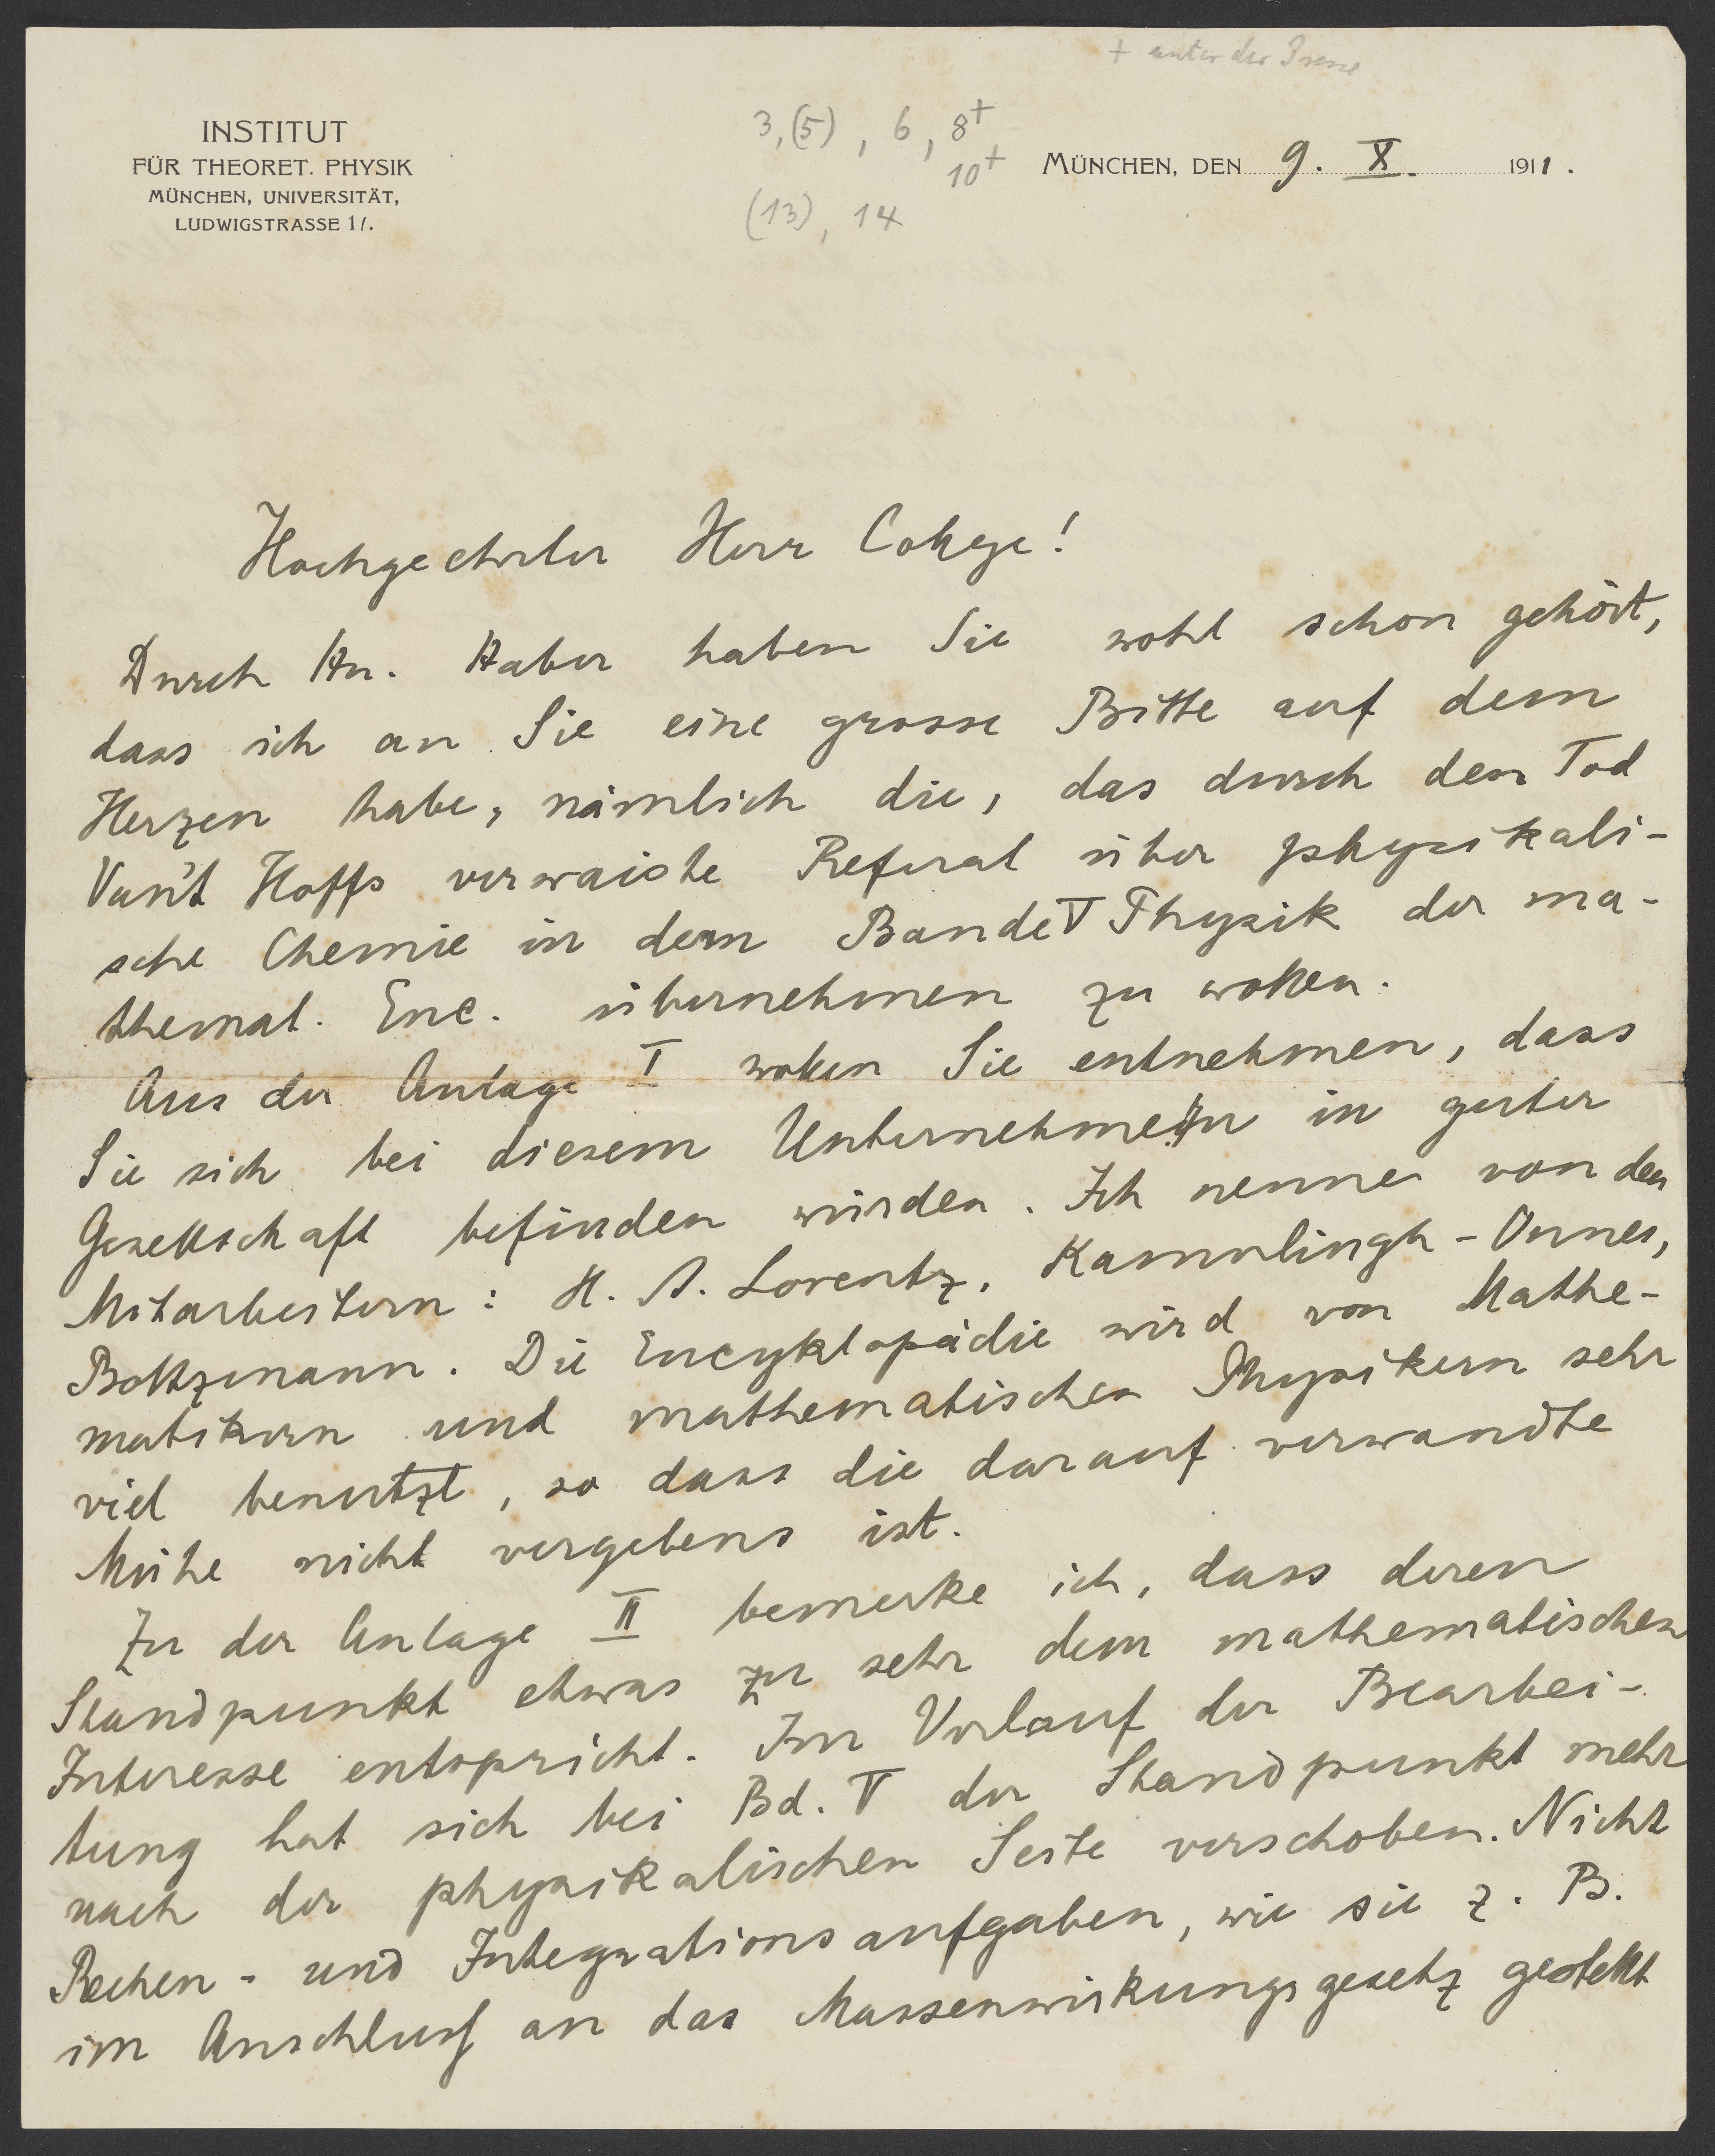 + unter der Presse
3, (5), 6, 8+
10+
(13), 14
INSTITUT
FÜR THEORET. PHYSIK
MÜNCHEN, UNIVERSITÄT,
LUDWIGSTRASSE 17.
MÜNCHEN, DEN 9. X. 1911.
Hochgeehrter Herr College!
Durch Hn. Haber haben Sie wohl schon gehört,
dass ich an Sie eine grosse Bitte auf dem
Herzen habe, nämlich die, das durch den Tod
Van't Hoffs verwaiste Referat über physikali-
sche Chemie in dem Bande V Physik der ma-
themat. Enc. übernehmen zu wollen.
Aus der Anlage I wollen Sie entnehmen, dass
Sie sich bei diesem Unternehmen in guter
Gesellschaft befinden würden. Ich nenne von den
Mitarbeitern: H. A. Lorentz, Kammlingh-Onnes,
Boltzmann. Die Encyklopädie wird von Mathe-
matikern und mathematischen Physikern sehr
viel benutzt, so dass die darauf verwandte
Mühe nicht vergebens ist.
Zu der Anlage II bemerke ich, dass deren
Standpunkt etwas zu sehr dem mathematischen
Interesse entspricht. Im Verlauf der Bearbei-
tung hat sich bei Bd. V der Standpunkt mehr
nach der physikalischen Seite verschoben. Nicht
Rechen- und Integrationsaufgaben, wie sie z. B.
im Anschluss an das Massenwirkungsgesetz gestellt